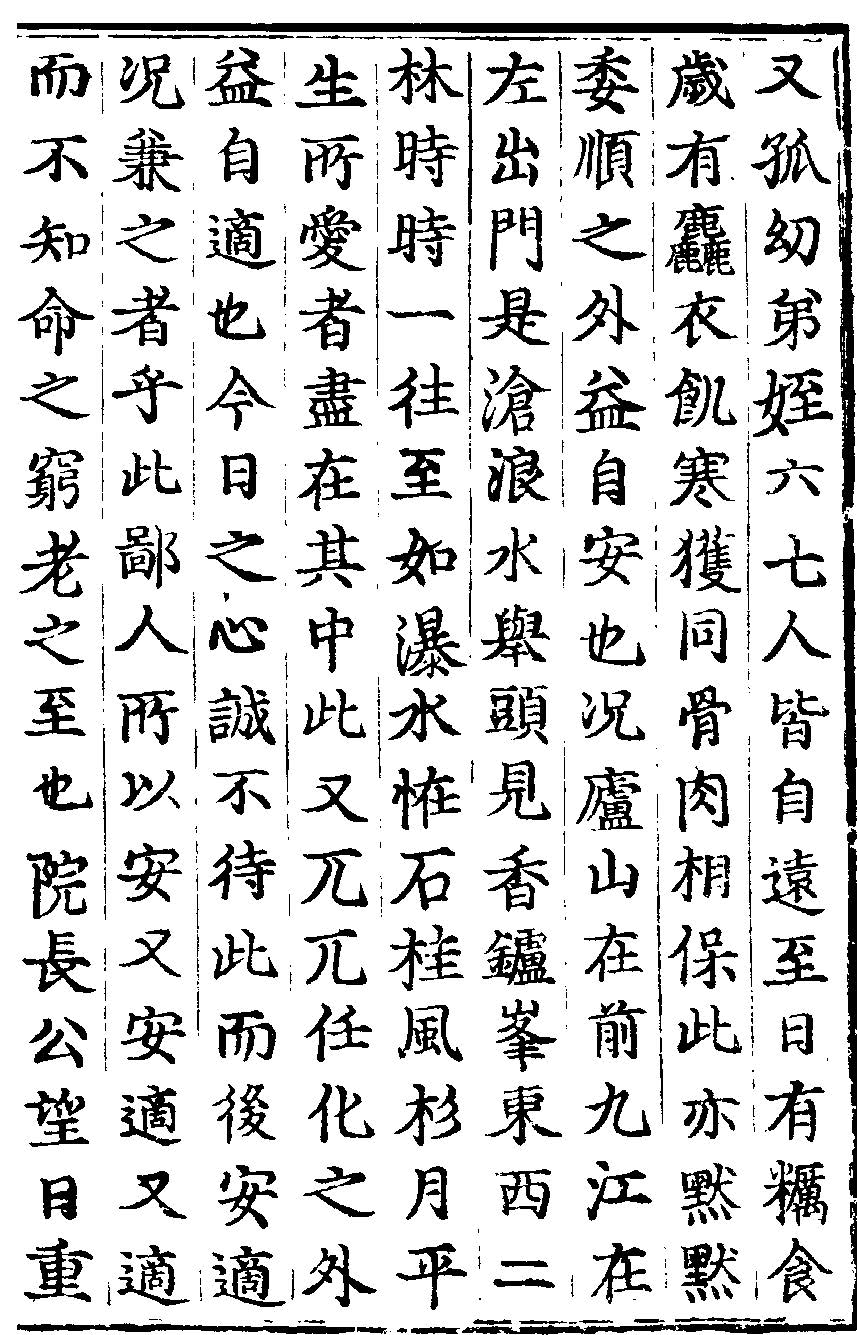 又孤幼弟姪六七人皆自遠至日有糲食
歲有麤衣飢寒獲同骨肉相保此亦默默
委順之外益自安也况廬山在前九江在
左出門是滄浪水舉頭見香鑪峯東西二
林時時一往至如瀑水恠石桂風杉月平
生所愛者盡在其中此又兀兀任化之外
益自適也今日之心誠不待此而後安適
况兼之者乎此鄙人所以安又安適又適
而不知命之窮老之至也院長公望日重